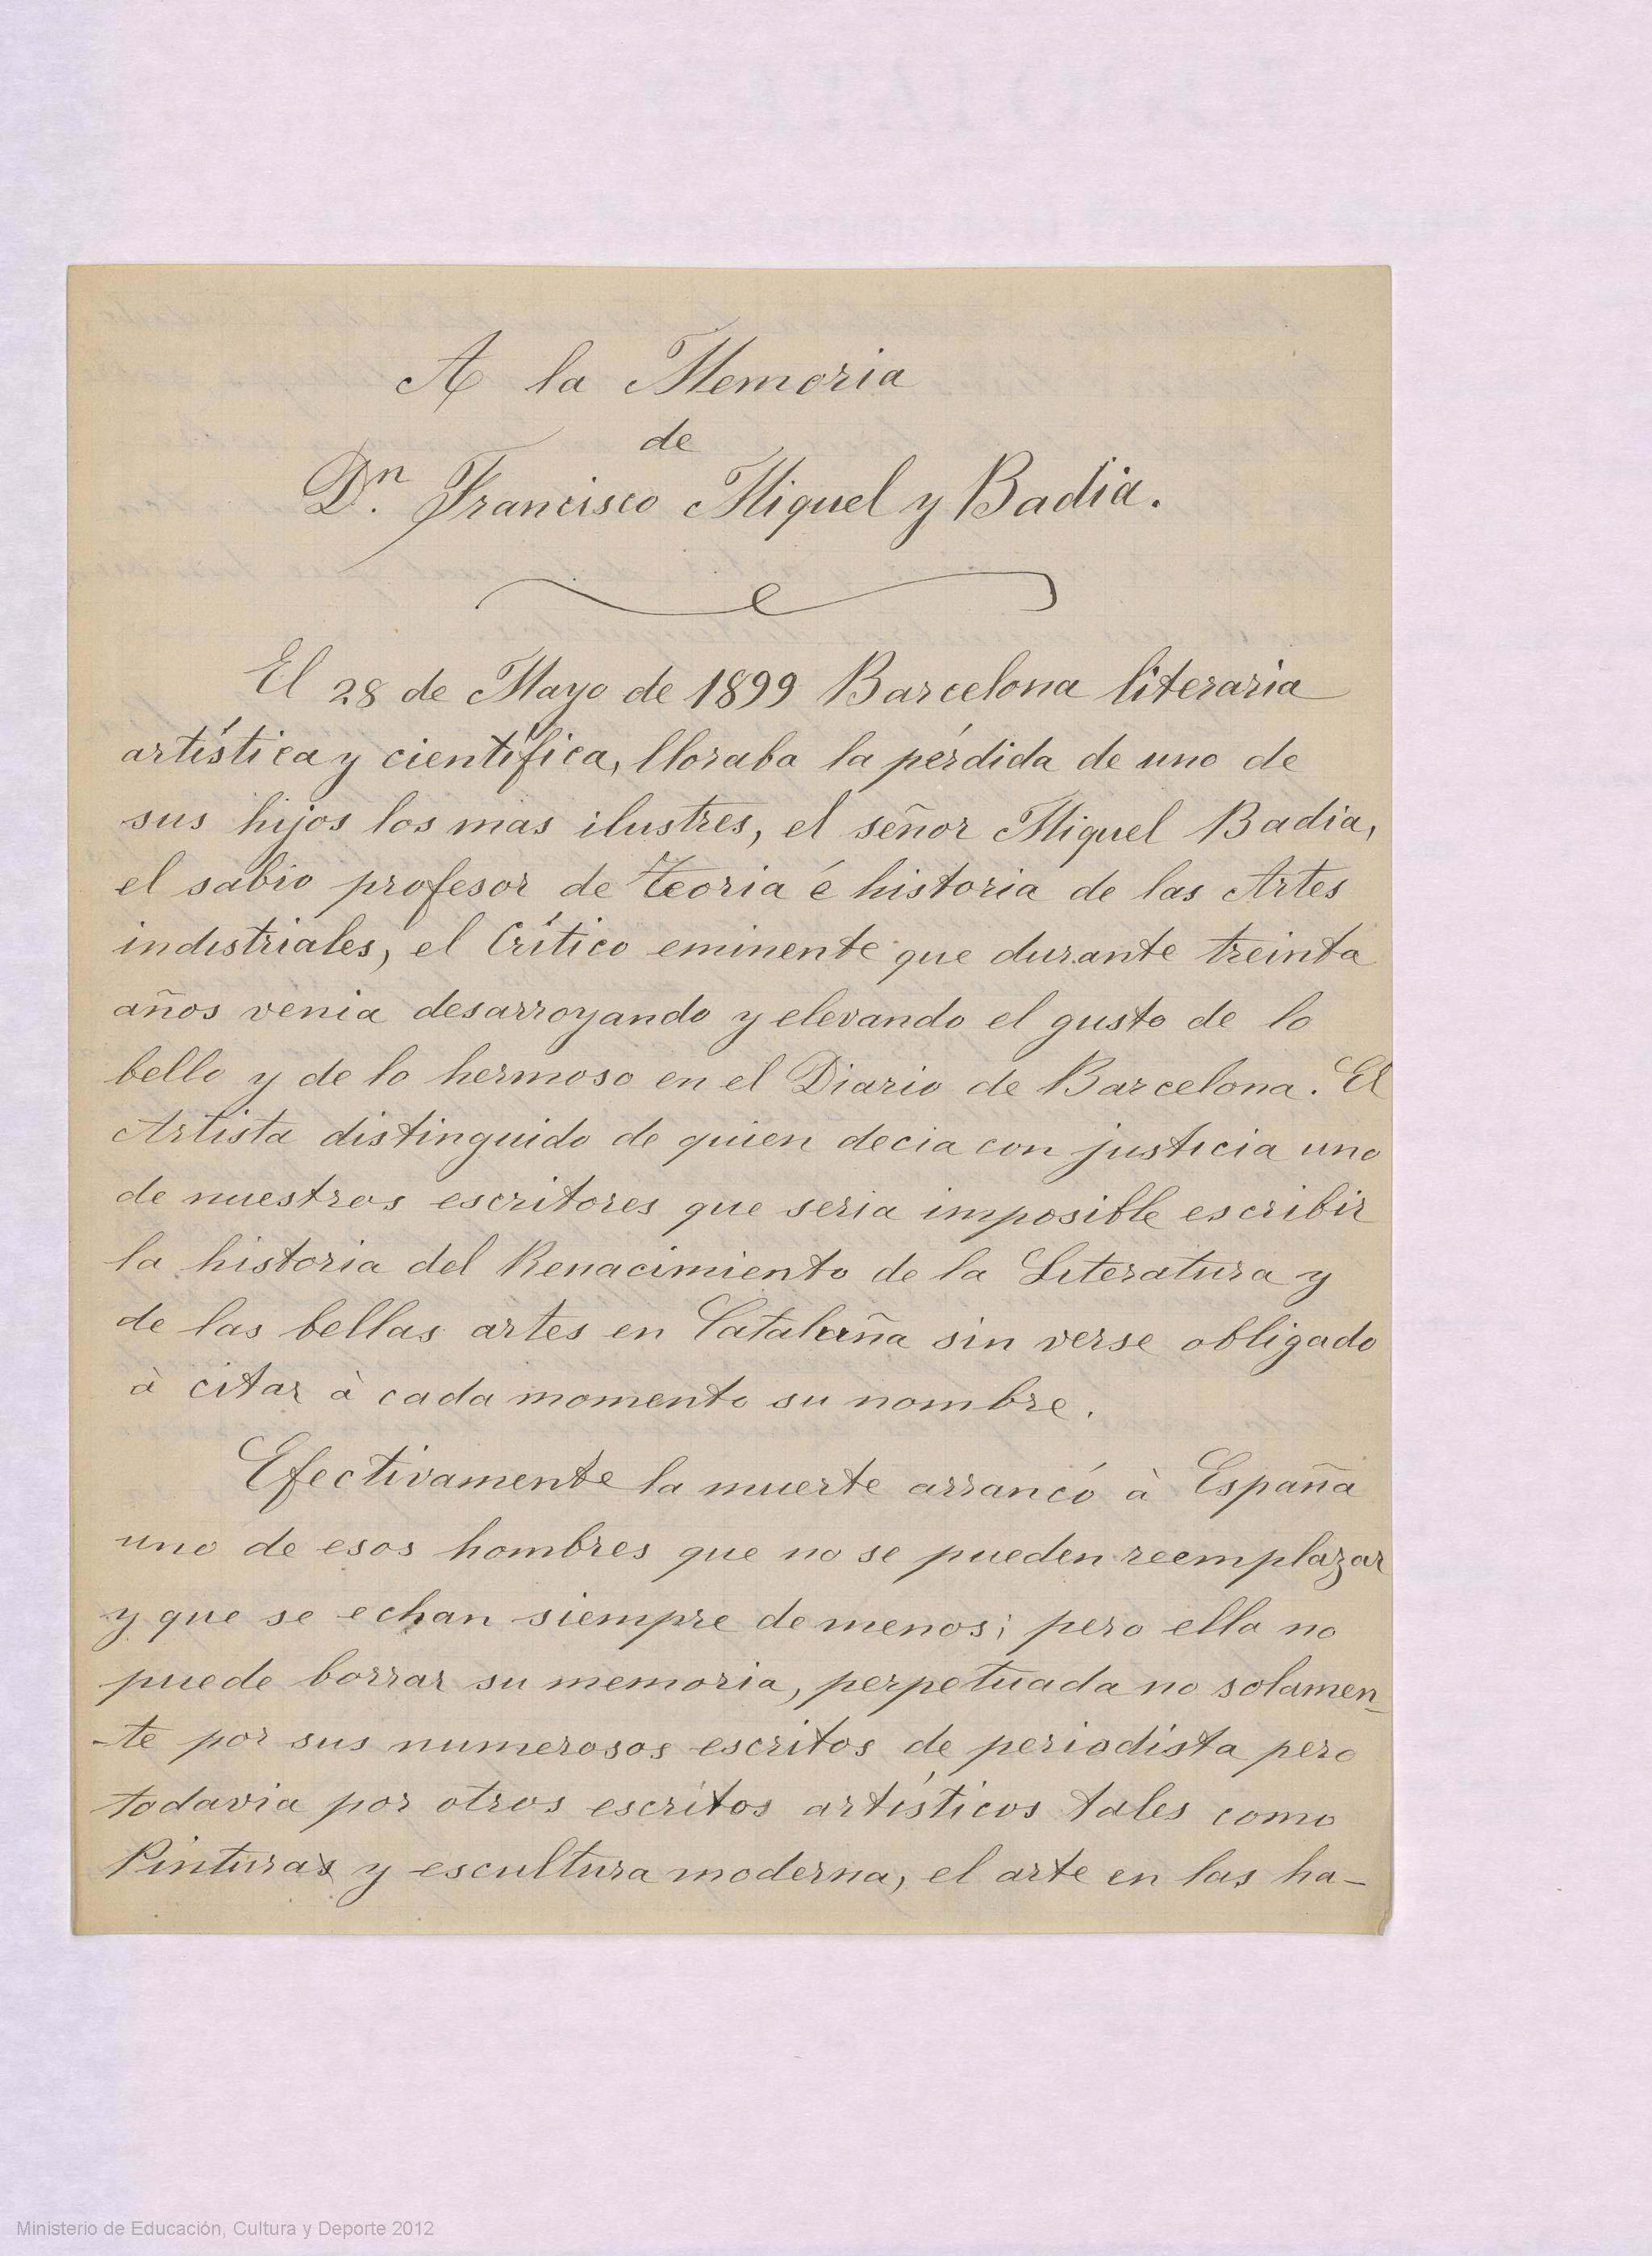 A la Memoria
de
Dn. Francisco Miquel y Badia.
El 28 de Mayo de 1899 Barcelona literaria
artística y científica, lloraba la pérdida de uno de
sus hijos los mas ilustres, el señor Miquel Badia,
el sabio profesor de Teoria é historia de las Artes
industriales, el Crítico eminente que durante treinta
años venia desarroyando y elevando el gusto de lo
bello y de lo hermoso en el Diario de Barcelona. El
Artista distinguido de quien decia con justicia uno
de nuestros escritores que seria imposible escribir
la historia del Renacimiento de la Literatura y
de las bellas artes en Cataluña sin verse obligado
à citar à cada momento su nombre.
Efectivamente la muerte arrancó à España
uno de esos hombres que no se pueden reemplazar
y que se echan siempre de menos; pero ella no
puede borrar su memoria, perpetuada no solamen-
-te por sus numerosos escritos de periodista pero
todavia por otros escritos artísticos tales como
Pinturas y escultura moderna, el arte en las ha-
Ministerio de Educación, Cultura y Deporte 2012